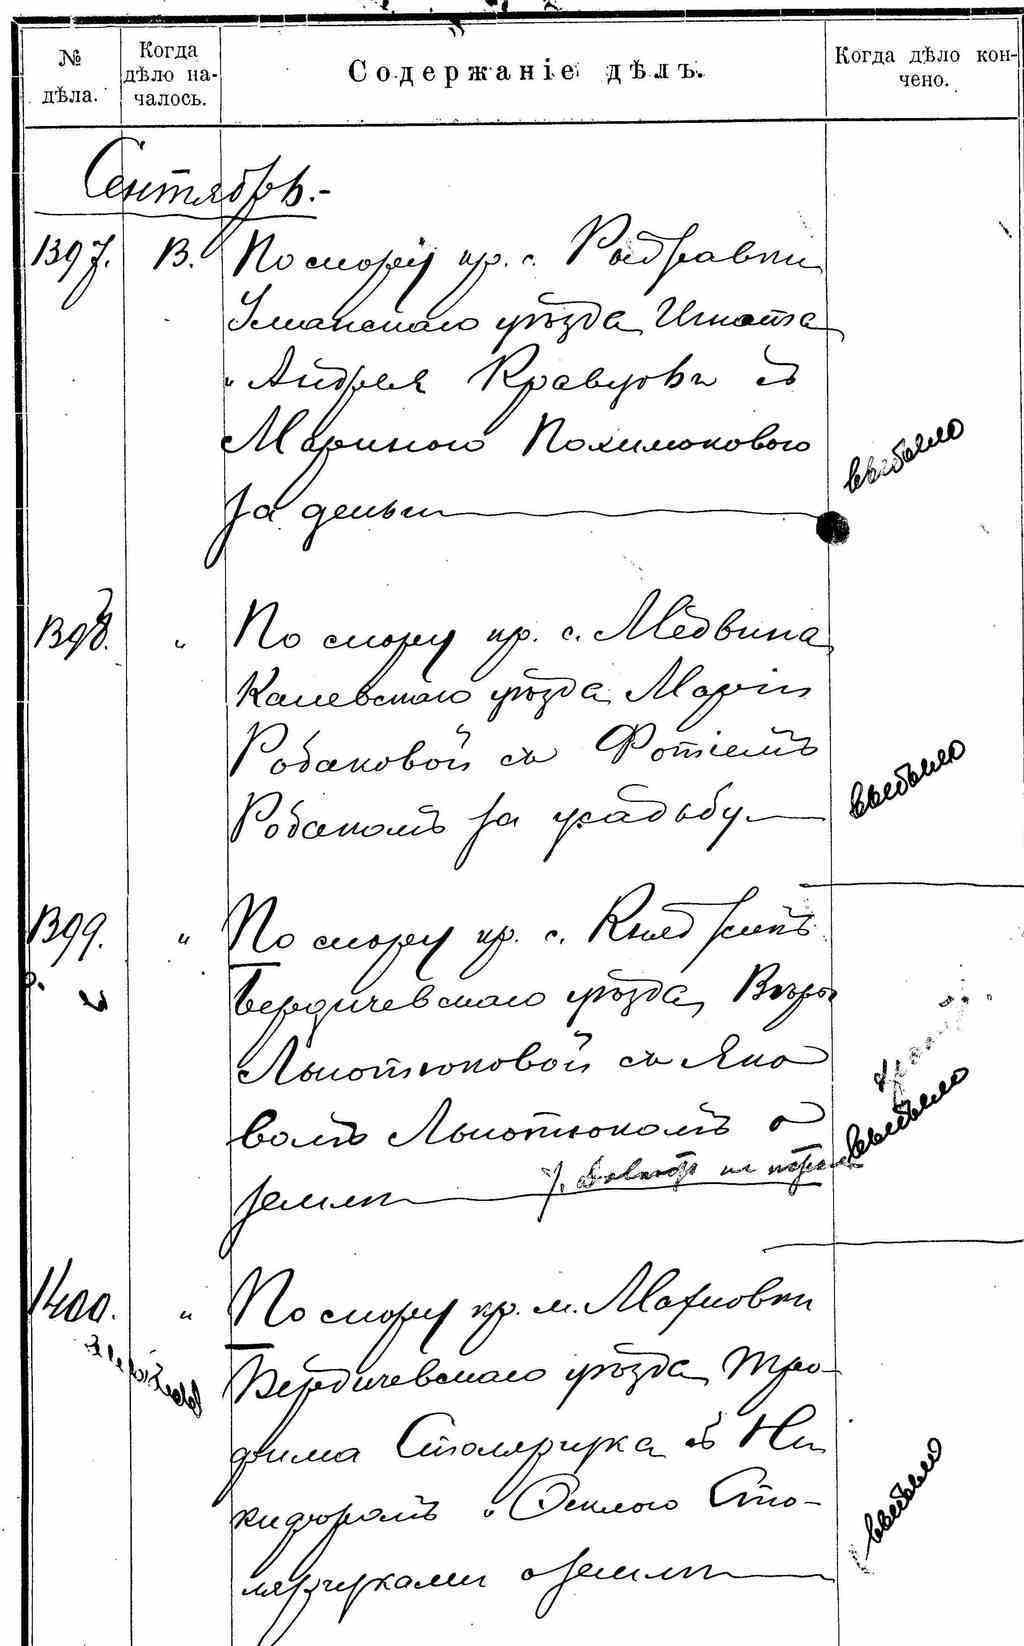 № дѣла.
Когда дѣло на-
чалось.
Содержаніе дѣлъ.
Когда дѣло кон-
чено.
Сентябрь.-
1397. 13. По спору кр. с.
Уманскаго уѣзда Игната
и Андрея Кравцовъ съ
Мариною
за деньги
выбыло
1398. " По спору кр. с. Медвина
Каневскаго уѣзда Маріи
Робаковой съ Фотіемъ
Робакомъ за усадьбу
выбыло
1399. " По спору кр. с.
Бердичевскаго уѣзда Вѣры
Лысотюковой съ Яко
вомъ Лысотюкомъ о
землѣ
выбыло
1400. " По спору кр. м. Махновки
Бердичевскаго уѣзда Тро-
фима Столярчука съ Ни
кифоромъ и Феклою Сто-
лярчуками о землѣ
выбыло